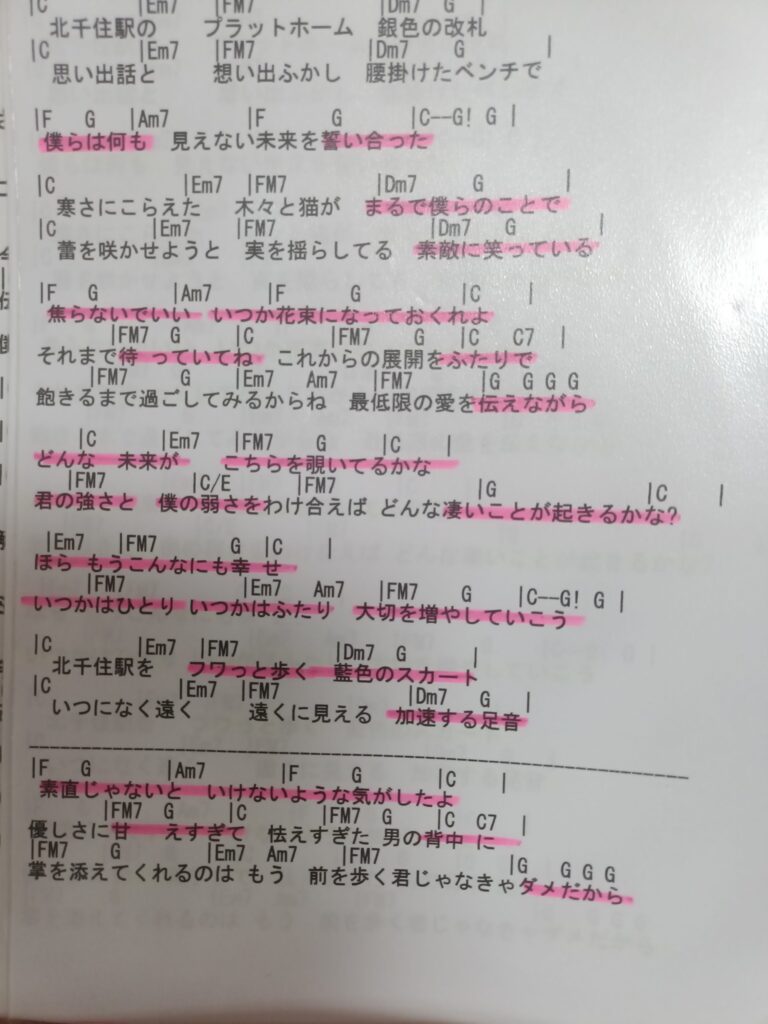 |C |Em7 |FM7 |Dm7 G |
北千住駅の プラットホーム 銀色の改札
|C |Em7 |FM7 |Dm7 G |
思い出話と 想い出ふかし 腰掛けたベンチで
|F G |Am7 |F G |C--G! G |
僕らは何も 見えない未来を誓い合った
|C |Em7 |FM7 |Dm7 G |
寒さにこらえた 木々と猫が まるで僕らのことで
|C |Em7 |FM7 |Dm7 G |
蕾を咲かせようと 実を揺らしてる 素敵に笑っている
|F G |Am7 |F G |C |
焦らないでいい いつか花束になっておくれよ
|FM7 G |C |FM7 G |C C7 |
それまで待 っていてね これからの展開をふたりで
|FM7 G |Em7 Am7 |FM7 |G G G G
飽きるまで過ごしてみるからね 最低限の愛を伝えながら
|C |Em7 |FM7 G |C
どんな 未来が こちらを覗いてるかな
|FM7 |C/E |FM7 |G |C |
君の強さと 僕の弱さをわけ合えば どんな凄いことが起きるかな?
|Em7 |FM7 G |C |
ほら もうこんなにも幸 せ
|FM7 |Em7 Am7 |FM7 G |C--G! G |
いつかはひとり いつかはふたり 大切を増やしていこう
|C |Em7 |FM7 |Dm7 G |
北千住駅を フワっと歩く 藍色のスカート
|C |Em7 |FM7 |Dm7 G |
いつになく遠く 遠くに見える 加速する足音
|F G |Am7 |F G |C |
素直じゃないと いけないような気がしたよ
|FM7 G |C |FM7 G |C C7 |
優しさに甘 えすぎて 怯えすぎた 男の背中 に
|FM7 G |Em7 Am7 |FM7 |G G G G
掌を添えてくれるのは もう 前を歩く君じゃなきゃダメだから